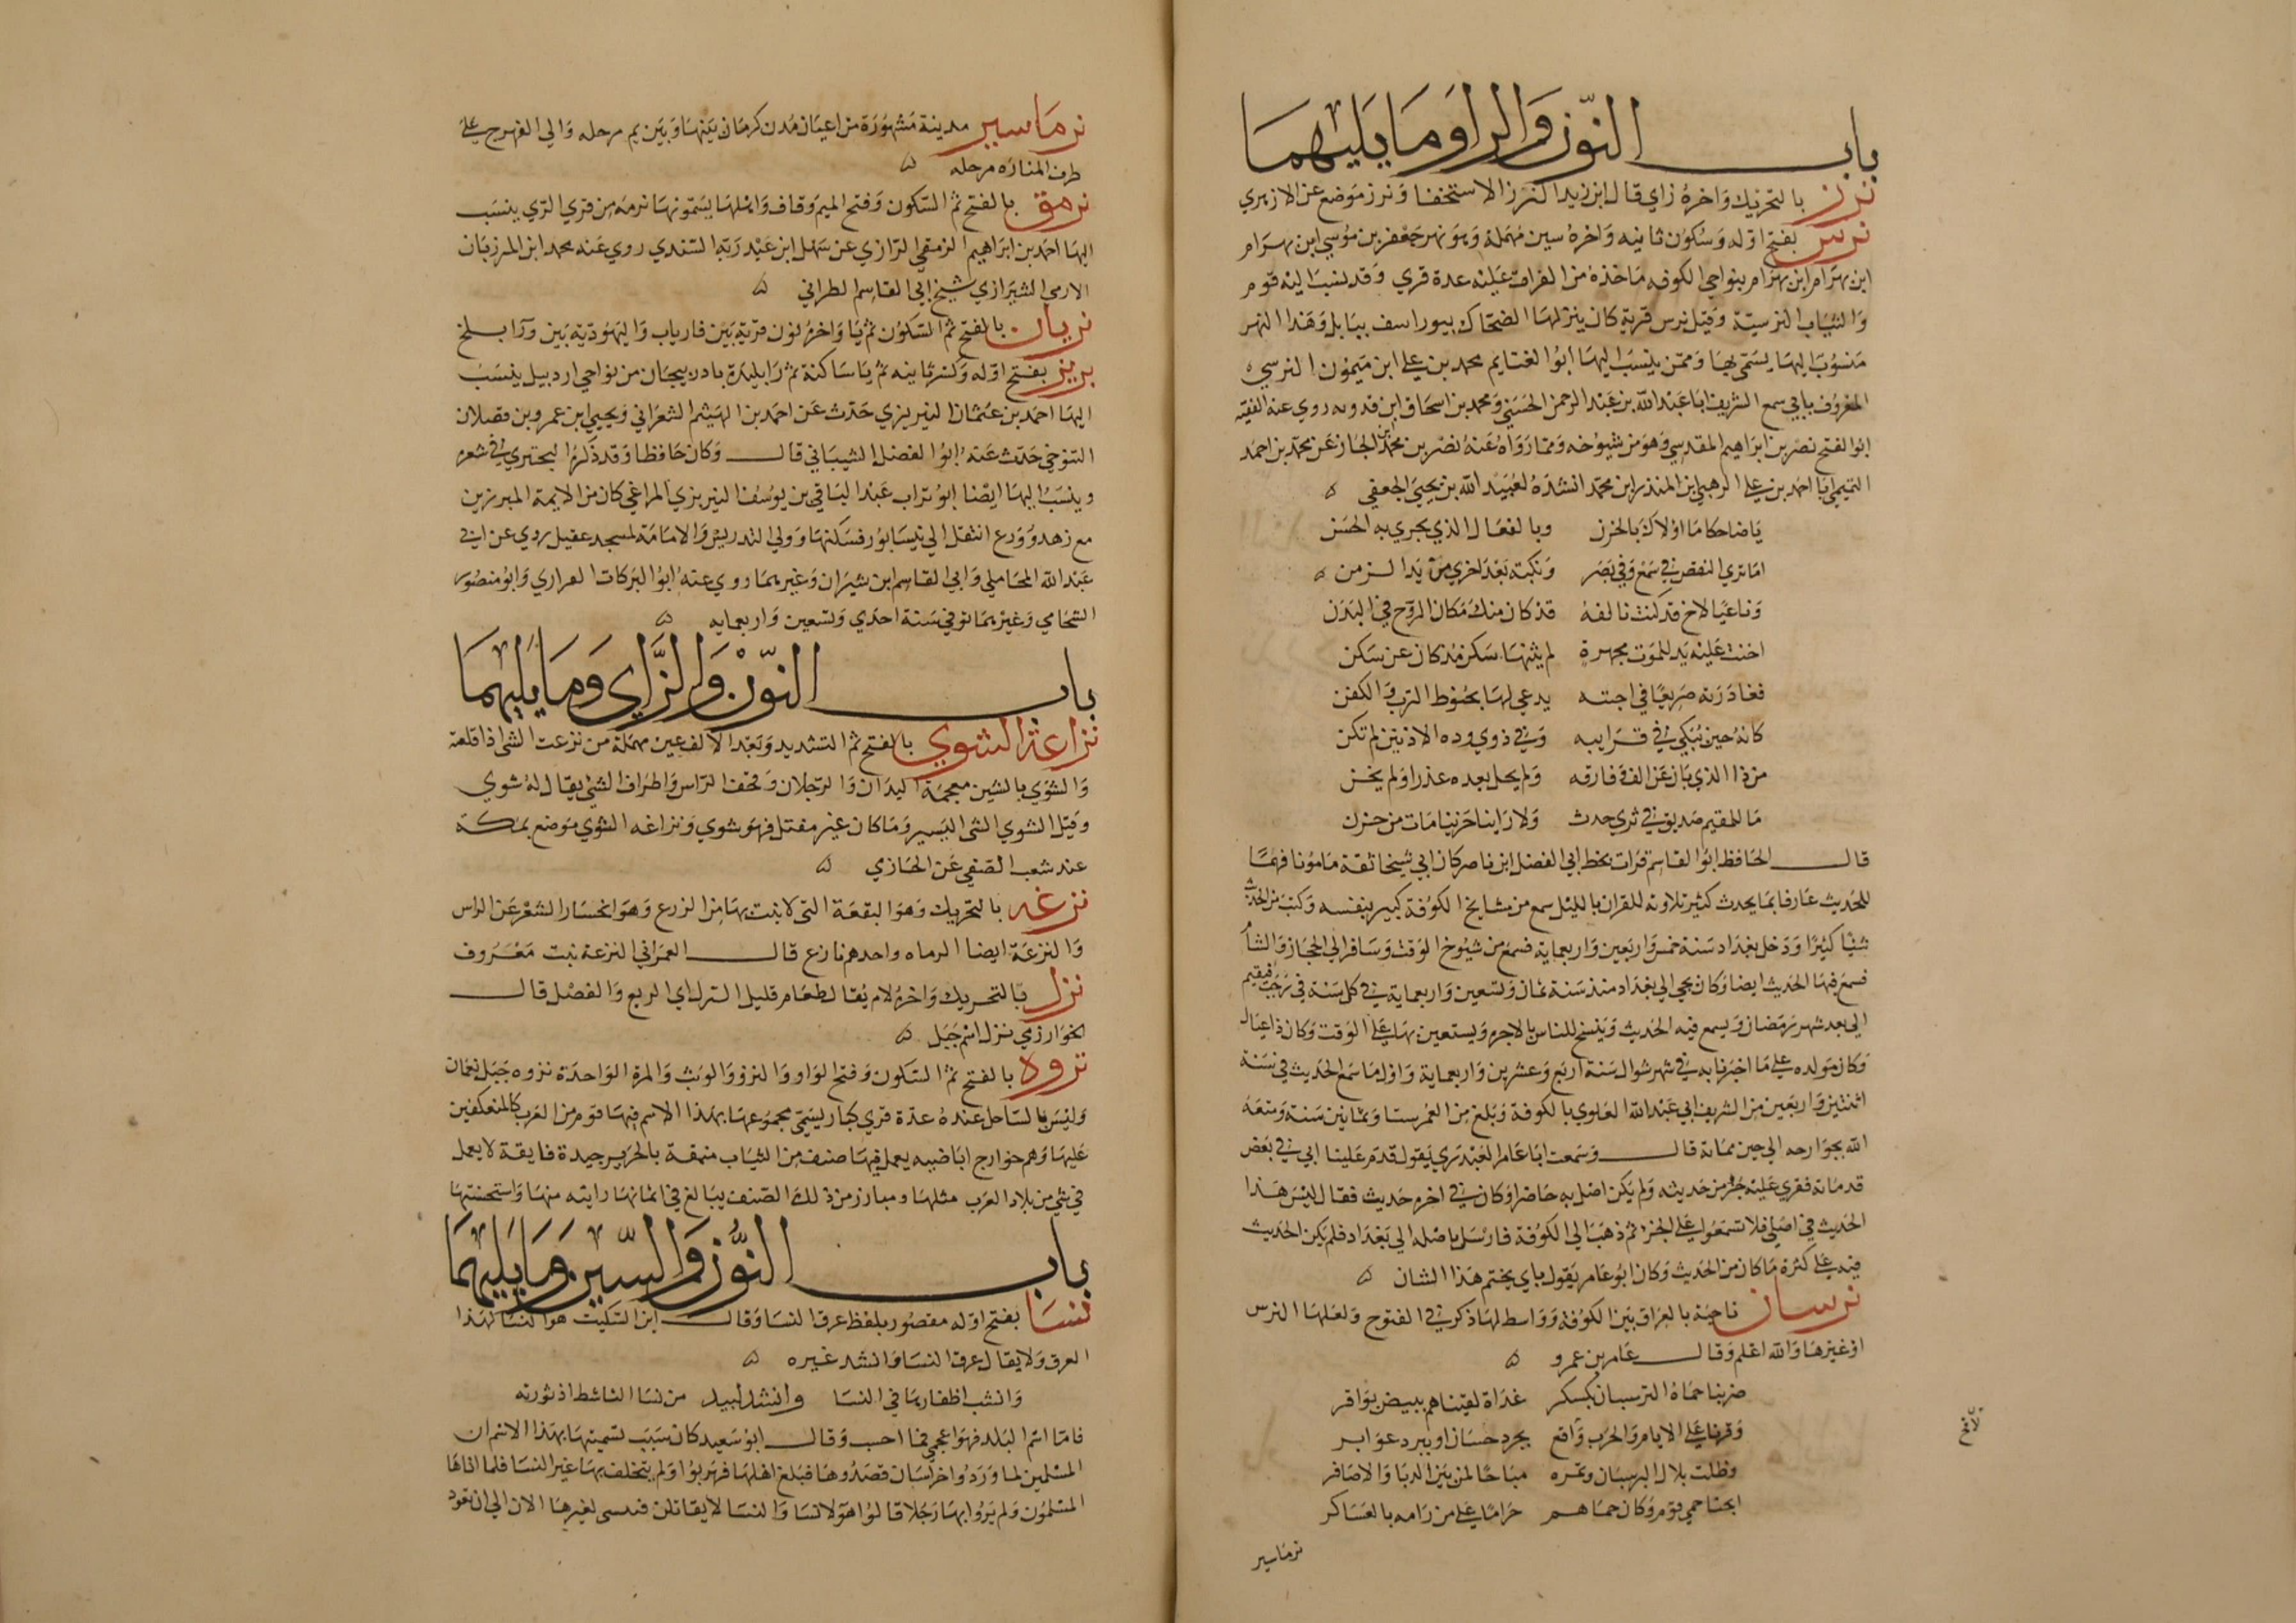 باب النون والرا وما يليهما
نرز بالتحريك واخره زاي قال ابن زيد النرز الاستخفا ونرز موضع عن الازهري
نرس بفتح اوله وسكون ثانيه واخره سين مهملة وهو نهر جعفر بن موسي ابن بهرام
ابن بهرام ابن بهرام بنواحي الكوفه ماخذه من الفرات عليه عدة قري وقد نسب اليه قوم
والثياب النرسية وقيل نرس قرية كان ينزلها الضحاك بيوراسف ببابل وهذا النهر
منسوب اليها يسمي بها وممن ينسب اليها ابوا الغنايم محمد بن علي ابن ميمون النرسي
المعروف بابي سمع الشريف ابا عبد الله بن عبد الرحمن الحسني ومحمد بن اسحاق ابن فدويه روي عنه الفقيه
ابوا لفتح نصر بن ابراهيم المقدسي وهو من شيوخه ومما رواه عنه نصر بن محمد الجاز عن محمد بن احمد
التيمي ابا احمد بن علي الرهبلي ابن المنذر ابن محمد انشده لعبيد الله بن يحيي الجعفي
يا ضاحكا ما اولاك بالحزن وبالفعال الذي يجري به الحسن
اما تري النقص في سمع وفي بصر ونكبة بعد اخري من يد الزمن
وناعيا لاخ قد كنت تالفه قد كان منك مكان الروح في البدن
اخنت عليه يد للموت مجهرة لم يثنها سكن مذ كان عن سكن
فغادرته صريعا في اجته يدعي لها بحنوط الترب والكفن
كانه حين نبكي في قرايبه وفي ذوي وده الاذنين لم تكن
من ذا الذي بان عن الف وفارقه ولم يحل بعده عذرا ولم يخن
ما للمقيم صديق في ثري جدث ولا راينا حزينا مات من حزن
قال الحافظ ابوا لقاسم قرات بخط ابي الفضل ابن ناصر كان ابي شيخا ثقة مامونا فهما
للحديث عارفا بما يحدث كثير تلاوته للقران بالليل سمع من مشايخ الكوفة كبير بنفسه وكتب من الحديث
شيا كثيرا ودخل بغداد سنة خمس واربعين واربعمايه فسمع من شيوخ الوقت وسافر الي الحجاز والشام
فسمع فيها الحديث ايضا وكان يجي الي بغداد منذ سنة ثمان وتسعين واربعماية في كل سنة في رجب فيقيم
الي بعد شهر رمضان ويسمع فيه الحديث وينسخ للناس بالاجره ويستعين بها علي الوقت وكان ذا عيال
وكان مولده علي ما اخبرنا به في شهر شوال سنة اربع وعشرين واربعماية واول ما سمع الحديث في سنة
اثنتين واربعين من الشريف ابي عبد الله العلوي بالكوفة وبلغ من العمر ستا وثمانين سنة ومتعه
الله بجوارحه الي حين مماته قال وسمعت ابا عامر العبدري يقول قدم علينا ابي في بعض
قدماته فقري عليه جز من حديثه ولم يكن اصله به حاضرا وكان في اخره حديث فقال ليس هذا
الحديث في اصلي فلا تسمعوا علي الجز ثم ذهب الي الكوفة فارسل باصله الي بغداد فلم يكن الحديث
فيه علي كثرة ما كان من الحديث وكان ابو عامر يقول بابي يختم هذا الشان
نرسان ناحية بالعراق بين الكوفة وواسط لها ذكر في الفتوح ولعلها النرس
او غيرها والله اعلم وقال عامر بن عمرو
ضربنا حماة النرسيان بكسكر غداة لقيناهم ببيض بواقر
وفرنا علي الايام والحرب واقع بجرد حسان او ببرد عوابر
وظلت بلال البرسبان وتمره مباحا لمن بين الدبا والاصافر
ابحنا حمي قوم وكان حماهم حراما علي من رامه بالعساكر
نرماسير
نرماسير مدينة مشهورة من اعيان مدن كرمان بينها وبين بم مرحله والي الفهرج علي
طرف المناره مرحله
نرمق بالفتح ثم السكون وفتح الميم وقاف واهلها يسمونها نرمه من قري الري ينسب
اليها احمد بن ابراهيم النرمقي الرازي عن سهل ابن عبد ربه السندي روي عنه محمد ابن المرزبان
الارمي الشيرازي شيخ ابي القاسم الطراني
نريان بالفتح ثم السكون ثم يا واخره نون قرية بين فارياب واليهودية بين ورا بلخ
بريز بفتح اوله وكسر ثانيه ثم يا ساكنة ثم زا بليدة باذربيجان من نواحي اردبيل ينسب
اليها احمد بن عثمان النيريزي حدث عن احمد بن الهيثم الشعراني ويحيي ابن عمرو بن فضلان
التنوخي حدث عنه ابوا لفضل الشيباني قال وكان حافظا وقد ذكره البحتري في شعره
وينسب اليها ايضا ابو تراب عبد الباقي بن يوسف النيريزي المراغي كان من الايمة المبرزين
مع زهد وورع انتقل الي نيسابور فسكنها وولي التدريس والامامة لمسجد عقيل روي عن ابي
عبد الله المحاملي وابي القاسم ابن بشران وغيرهما روي عنه ابوا البركات الفراري وابو منصور
الشحامي وغيرهما توفي سنة احدي وتسعين واربعمايه
باب النون والزاي وما يليهما
نزاعة الشوي بالفتح ثم التشديد وبعد الالف عين مهملة من نزعت الشي اذا قلعته
والشوي بالشين معجمة اليدان والرجلان وقحف الراس واطراف الشي يقال له شوي
وقيل الشوي الشي اليسير وما كان غير مقتل فهو شوي ونزاعه الشوي موضع بمكة
عند شعب الصفي عن الحازي
نزعه بالتحريك وهو البقعة التي لا ينبت بها من الزرع وهو انحسار الشعر عن الراس
والنزعة ايضا الرماه واحدهم نازع قال العمراني النزعة نبت معروف
نزل بالتحريك واخره لام يقال طعام قليل النزل اي الريع والفضل قال
الخوارزمي نزل اسم جبل
نزوه بالفتح ثم السكون وفتح الواو والنزو والوثب والمرة الواحدة نزوه جبل بعمان
وليس بالساحل عنده عدة قري كبار يسمي مجموعها بهذا الاسم فيها قوم من العرب كالمنعكفين
عليها وهم خوارج اباضيه يعمل فيها صنف من الثياب منمقة بالحرير جيدة فايقة لا يعمل
في شي من بلاد العرب مثلها ومبارز من ذلك الصنف يبالغ في اثمانها رايته منها واستحسنتها
باب النون والسين وما يليهما
نسا بفتح اوله مقصور بلفظ عرق النسا وقال ابن السكيت هو النسا لهذا
العرق ولا يقال عرق النسا وانشد غيره
وانشب اظفارها في النسا وانشد لبيد من نسا الناشط اذ ثورته
فاما اسم البلد فهو اعجمي فيما احسب وقال ابو سعيد كان سبب تسميتها بهذا الاسم ان
المسلمين لما وردوا خراسان قصدوها فبلغ اهلها فهربوا ولم يتخلف بها غير النسا فلما اتاها
المسلمون ولم يروا بها رجلا قالوا هولا نسا والنسا لا يقاتلن فننسي لغيرها الان الي ان نعود